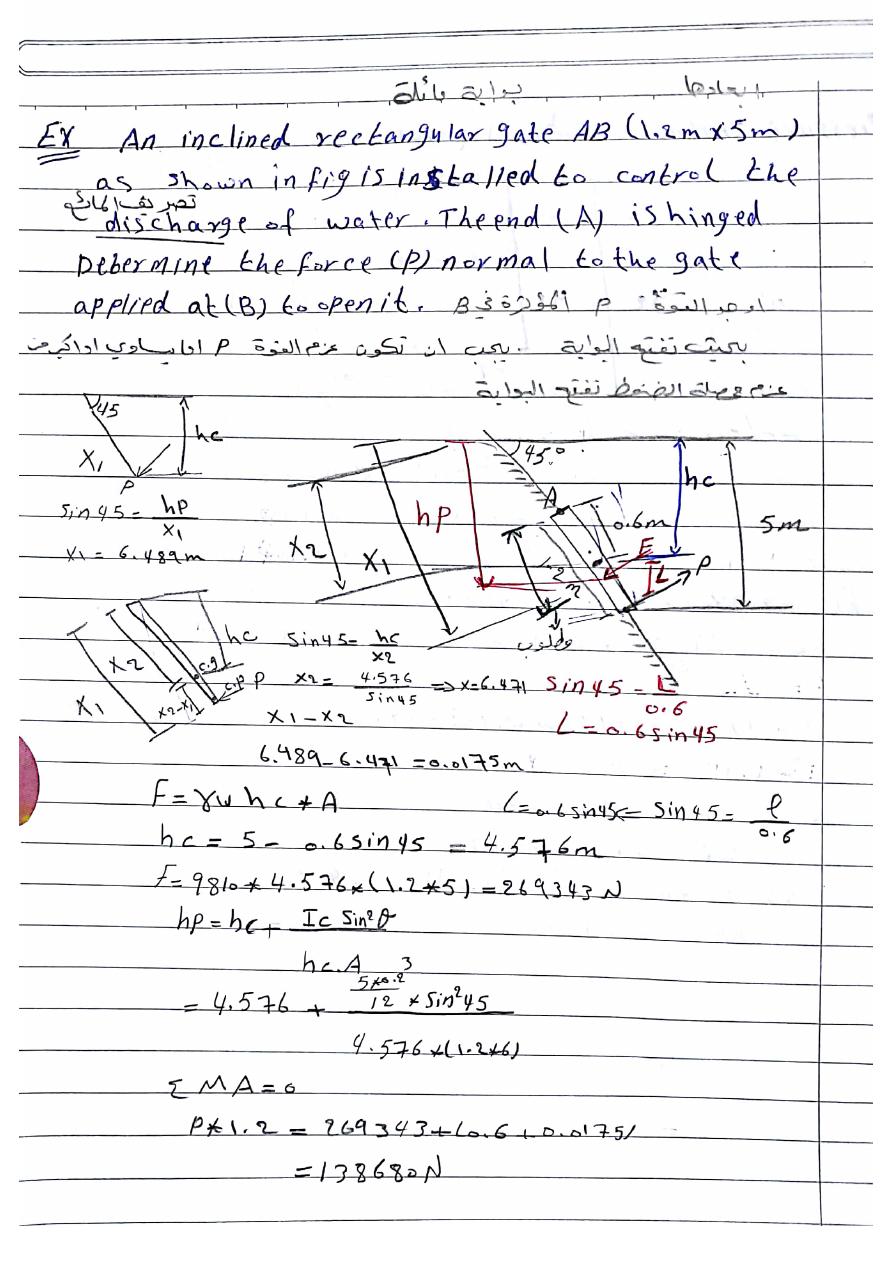 بوابة مائلة ابعادها
EX An inclined rectangular gate AB (1.2m x 5m)
as shown in fig is installed to control the
تصريف المائع
discharge of water. The end (A) is hinged
Determine the force (P) normal to the gate
applied at (B) to open it. اوجد القوة P المؤثرة في B
بحيث تفتح البوابة . يجب ان تكون عزم القوة P اما يساوي او اكبر من
عزم محصلة الضغط تفتح البوابة
45
hc
X1
P
Sin 45 = hP/X1
X1 = 6.489m
45°
hc
A
0.6m
5m
hP
X2
X1
F
L
P
مطلوب
hc
X2
X1
c.g
c.p P
X2-X1
Sin45 = hc/X2
X2 = 4.576/Sin45 => X=6.471
X1 - X2
6.489 - 6.471 = 0.0175m
Sin 45 = L/0.6
L = 0.6 Sin 45
F = γw hc * A
L = 0.6 sin45 <= Sin 45 = l/0.6
hc = 5 - 0.6 sin 45 = 4.576m
F = 9810 * 4.576 * (1.2*5) = 269343 N
hP = hc + Ic Sin²θ / hc.A
= 4.576 + 5*0.2³/12 * Sin²45 / 4.576 * (1.2*6)
Σ MA = 0
P * 1.2 = 269343 * (0.6 + 0.0175)
= 138680 N